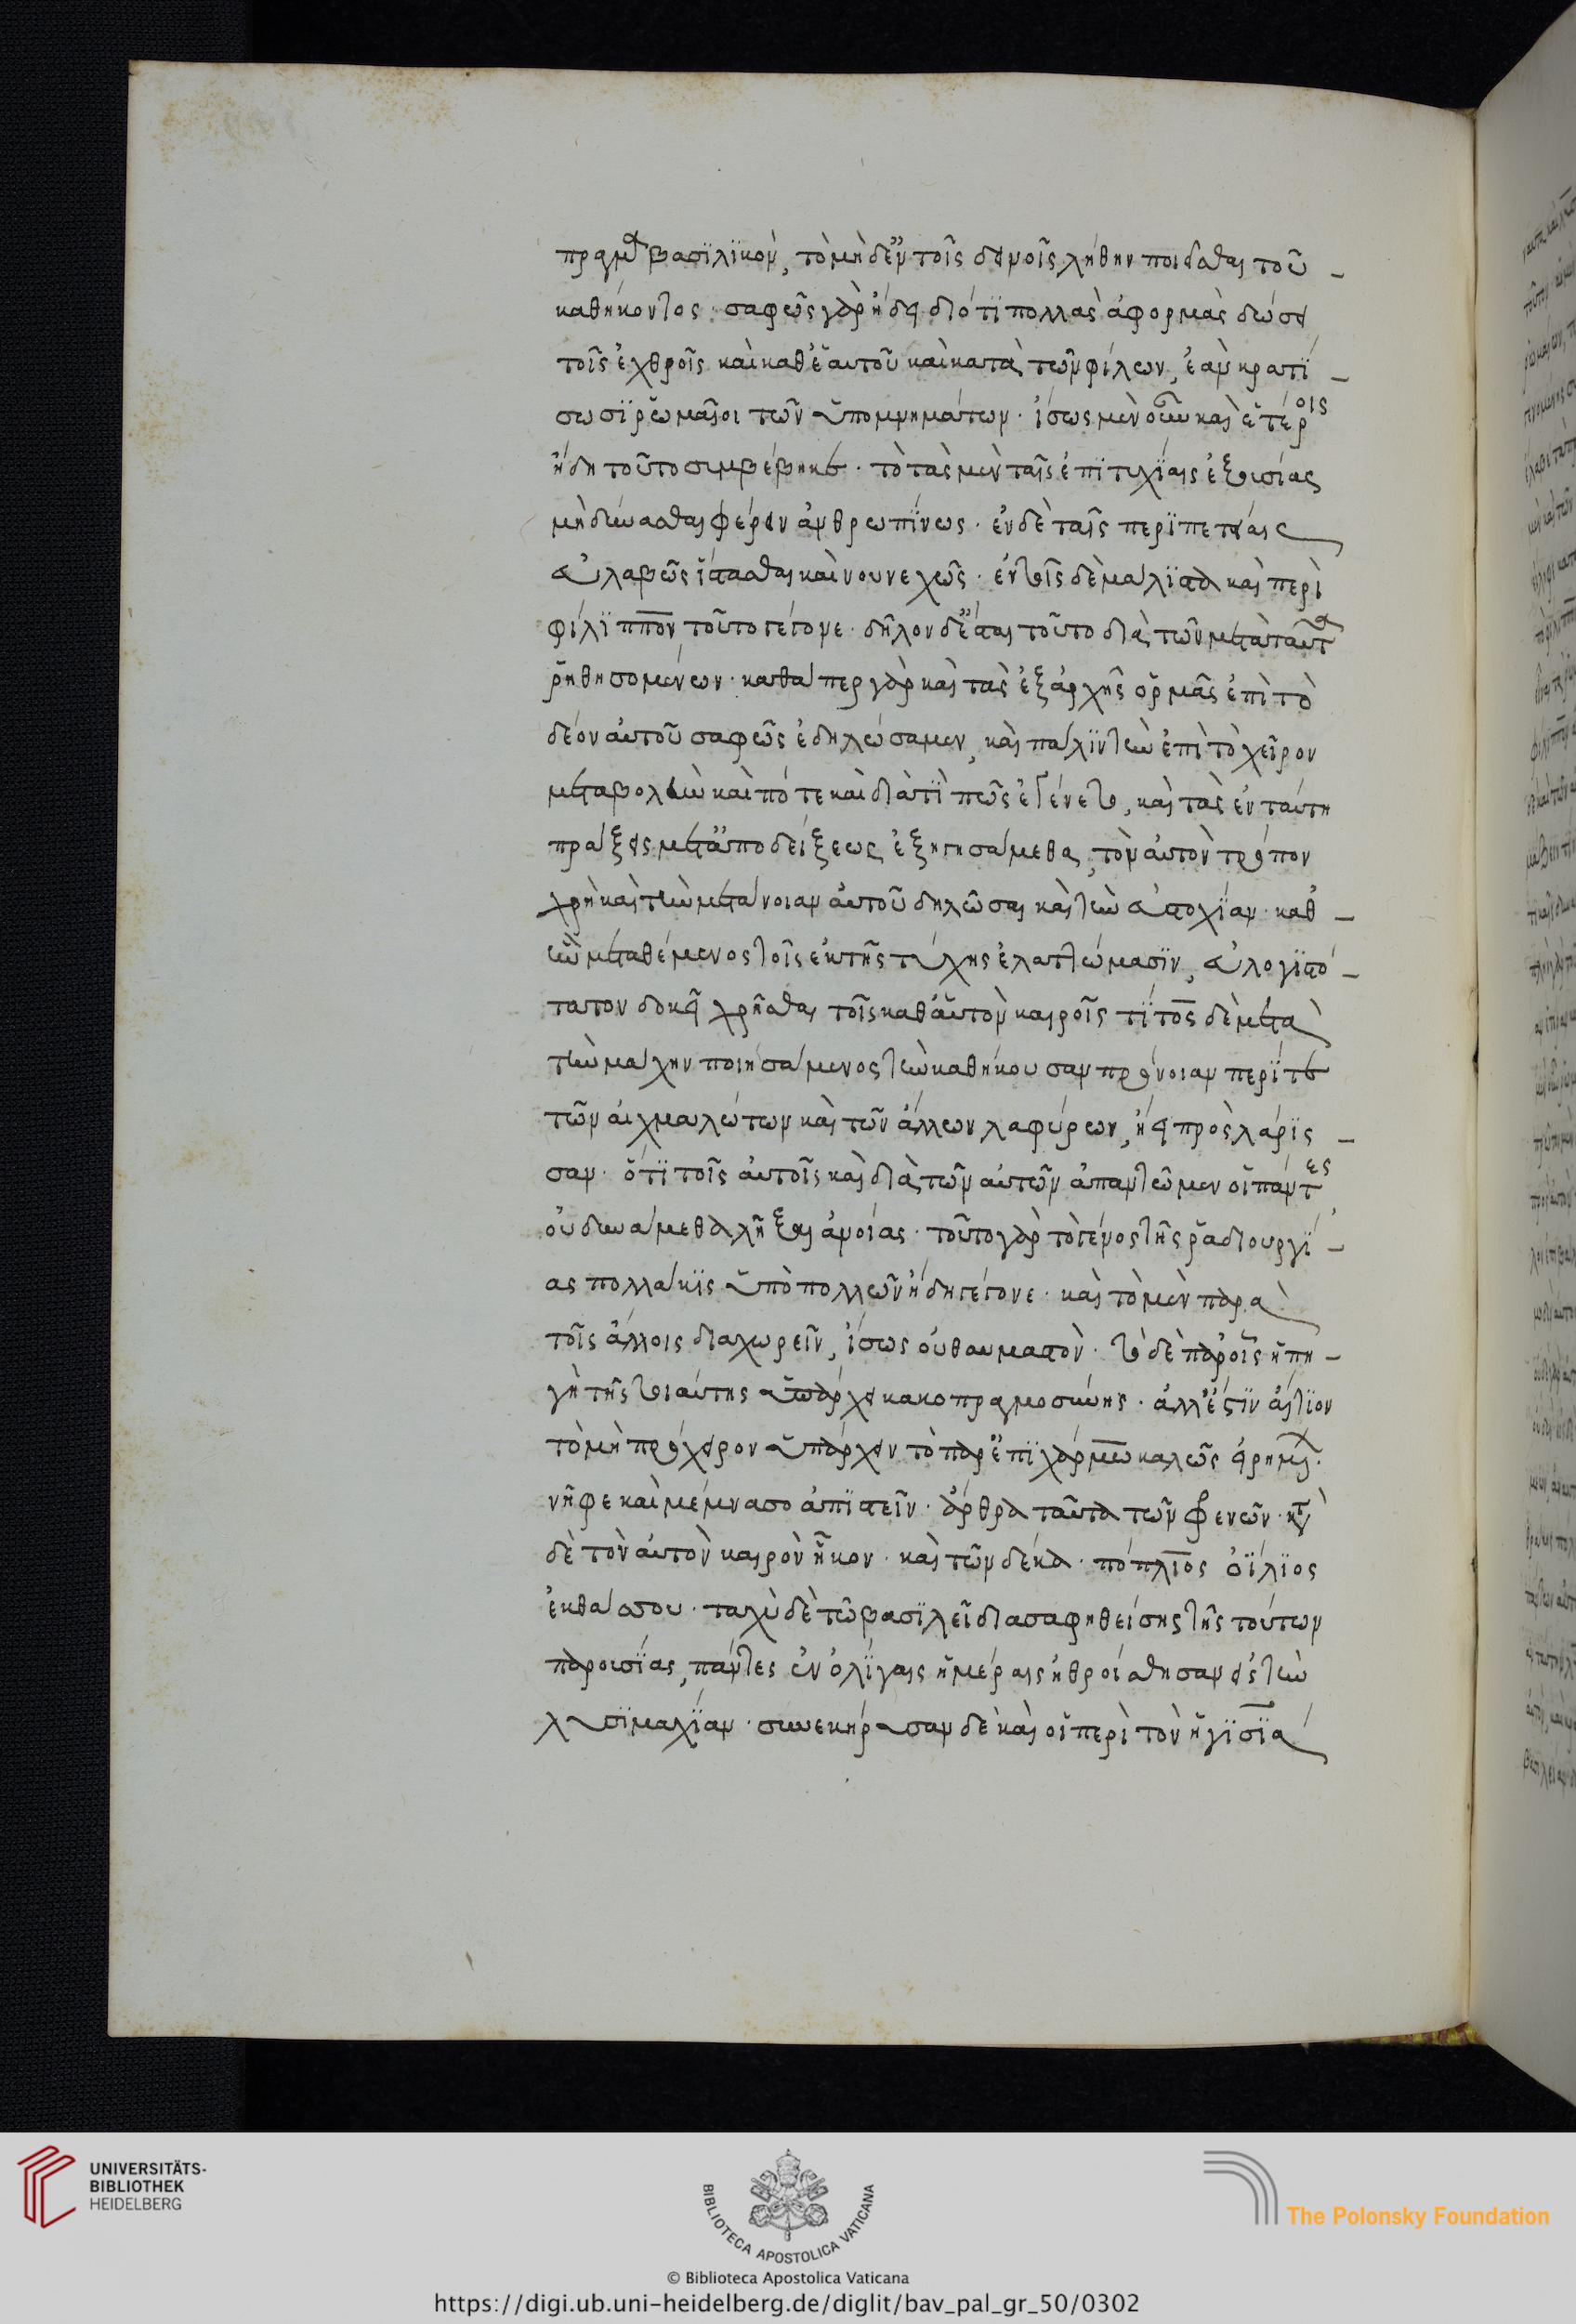 πραγμα βασϊλϊκον, το μηδ' ἐν τοῖς δεινοῖς λήθην ποιεῖσθαι τοῦ -
καθήκοντος · σαφῶς γὰρ ἤδει διότϊ πολλὰς ἀφορμὰς δώσει
τοῖς ἐχθροῖς καὶ καθ' ἑαυτοῦ καὶ κατὰ τῶν φίλων, ἐὰν κρατΐ -
σωσϊ ῥωμαῖοι τῶν ὑπομνημάτων · ἴσως μὲν οὖν καὶ ἑτέροις
ἤδη τοῦτο συμβέβηκε · τὸ τὰς μὲν ταῖς ἐπϊτυχΐαις ἐξουσίας
μὴ δύνασθαι φέρειν ἀνθρωπΐνως · ἐν δὲ ταῖς περϊπετείαις
εὐλαβῶς ἵστασθαι καὶ νουνεχῶς · ἐν τοῖς δὲ μάλϊστα καὶ περὶ
φίλϊππον τοῦτο γέγονε · δῆλον δ' ἔσται τοῦτο διὰ τῶν μετὰ ταῦτα
ῥηθησομένων · καθάπερ γὰρ καὶ τὰς ἐξ ἀρχῆς ὁρμὰς ἐπὶ τὸ
δέον αὐτοῦ σαφῶς ἐδηλώσαμεν, καὶ πάλϊν τὴν ἐπὶ τὸ χεῖρον
μεταβολὴν καὶ πότε καὶ διὰ τϊ πῶς ἐγένετο, καὶ τὰς ἐν ταύτη
πράξεις μετὰ ἀποδείξεως ἐξηγησάμεθα, τὸν αὐτὸν τρόπον
χρὴ καὶ τὴν μετάνοιαν αὐτοῦ δηλῶσαι καὶ τὴν εὐστοχΐαν · καθ' -
ἣν μεταθέμενος τοῖς ἐκ τῆς τύχης ἐλαττώμασϊν, εὐλογϊστό -
τατον δοκεῖ χρῆσθαι τοῖς καθ' αὑτὸν καιροῖς τΐτος δὲ μετὰ
τὴν μάχην ποιησάμενος τὴν καθήκουσαν πρόνοιαν περΐ τε
τῶν αἰχμαλώτων καὶ τῶν ἄλλων λαφύρων, ἤει πρὸς λάρϊς -
σαν · ὅτϊ τοῖς αὐτοῖς καὶ διὰ τῶν αὐτῶν ἀπαντῶμεν οἱ πάντες
οὐ δυνάμεθα λῆξαι ἀνοίας · τοῦτο γὰρ τὸ γένος τῆς ῥαδιουργΐ -
ας πολλάκϊς ὑπὸ πολλῶν ἤδη γέγονε · καὶ τὸ μὲν παρὰ
τοῖς ἄλλοις διαχωρεῖν, ἴσως οὐ θαυμαστὸν · τὸ δὲ παρ' οἷς ἡ πη -
γὴ τῆς τοιαύτης ὑπάρχει κακοπραγμοσύνης · ἀλλ' ἔστϊν αἴτϊον
τὸ μὴ πρόχειρον ὑπάρχειν τὸ παρ' ἐπϊχάρμω καλῶς εἰρημένον ·
νῆφε καὶ μέμνασο ἀπϊστεῖν · ἄρθρα ταῦτα τῶν φρενῶν · κατὰ
δὲ τὸν αὐτὸν καιρὸν ἧκον · καὶ τῶν δέκα · πόπλϊος ὀΐλϊος
ἐκ θάσου · ταχὺ δὲ τῶ βασϊλεῖ διασαφηθείσης τῆς τούτων
παρουσΐας, πάντες ἐν ὀλΐγαις ἡμέραις ἠθροίσθησαν εἰς τὴν
λυσϊμαχΐαν · συνεκήρυσαν δὲ καὶ οἱ περὶ τὸν ἡγϊσϊά
UNIVERSITÄTS-
BIBLIOTHEK
HEIDELBERG
BIBLIOTECA APOSTOLICA VATICANA
The Polonsky Foundation
© Biblioteca Apostolica Vaticana
https://digi.ub.uni-heidelberg.de/diglit/bav_pal_gr_50/0302